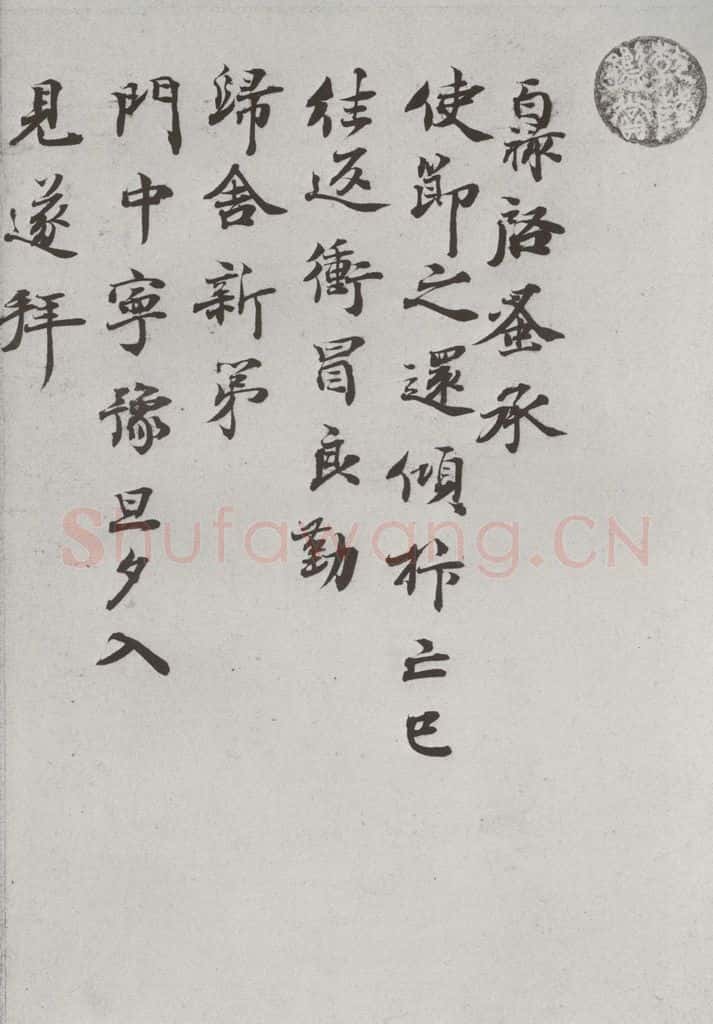 百祿啓蚤承
使節之還傾抃亡已
往返衝冒良勤
歸舍新第
門中寧豫旦夕入
見遂拜
Shufawang.CN